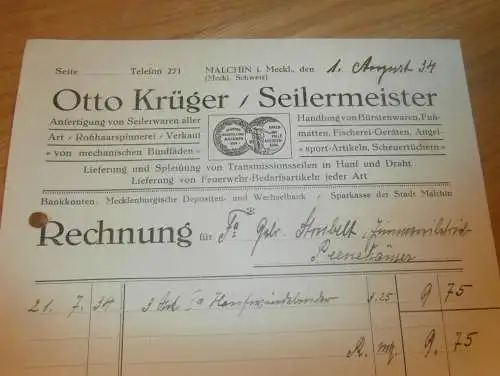 Seite Telefon 271 MALCHIN i. Meckl., den 1. August 34
(Meckl. Schweiz)
Otto Krüger / Seilermeister
Anfertigung von Seilerwaren aller
Art / Roßhaarspinnerei / Verkauf
von mechanischen Bindfäden
Handlung von Bürstenwaren, Fuß-
matten, Fischerei-Geräten, Angel-
sport-Artikeln, Scheuertüchern
Lieferung und Spleißung von Transmissionsseilen in Hanf und Draht
Lieferung von Feuerwehr-Bedarfsartikeln jeder Art
Bankkonten: Mecklenburgische Depositen- und Wechselbank / Sparkasse der Stadt Malchin
Rechnung für Fa Gebr.
21. 7. 34 3 Ia 3.25 9 75
9. 75